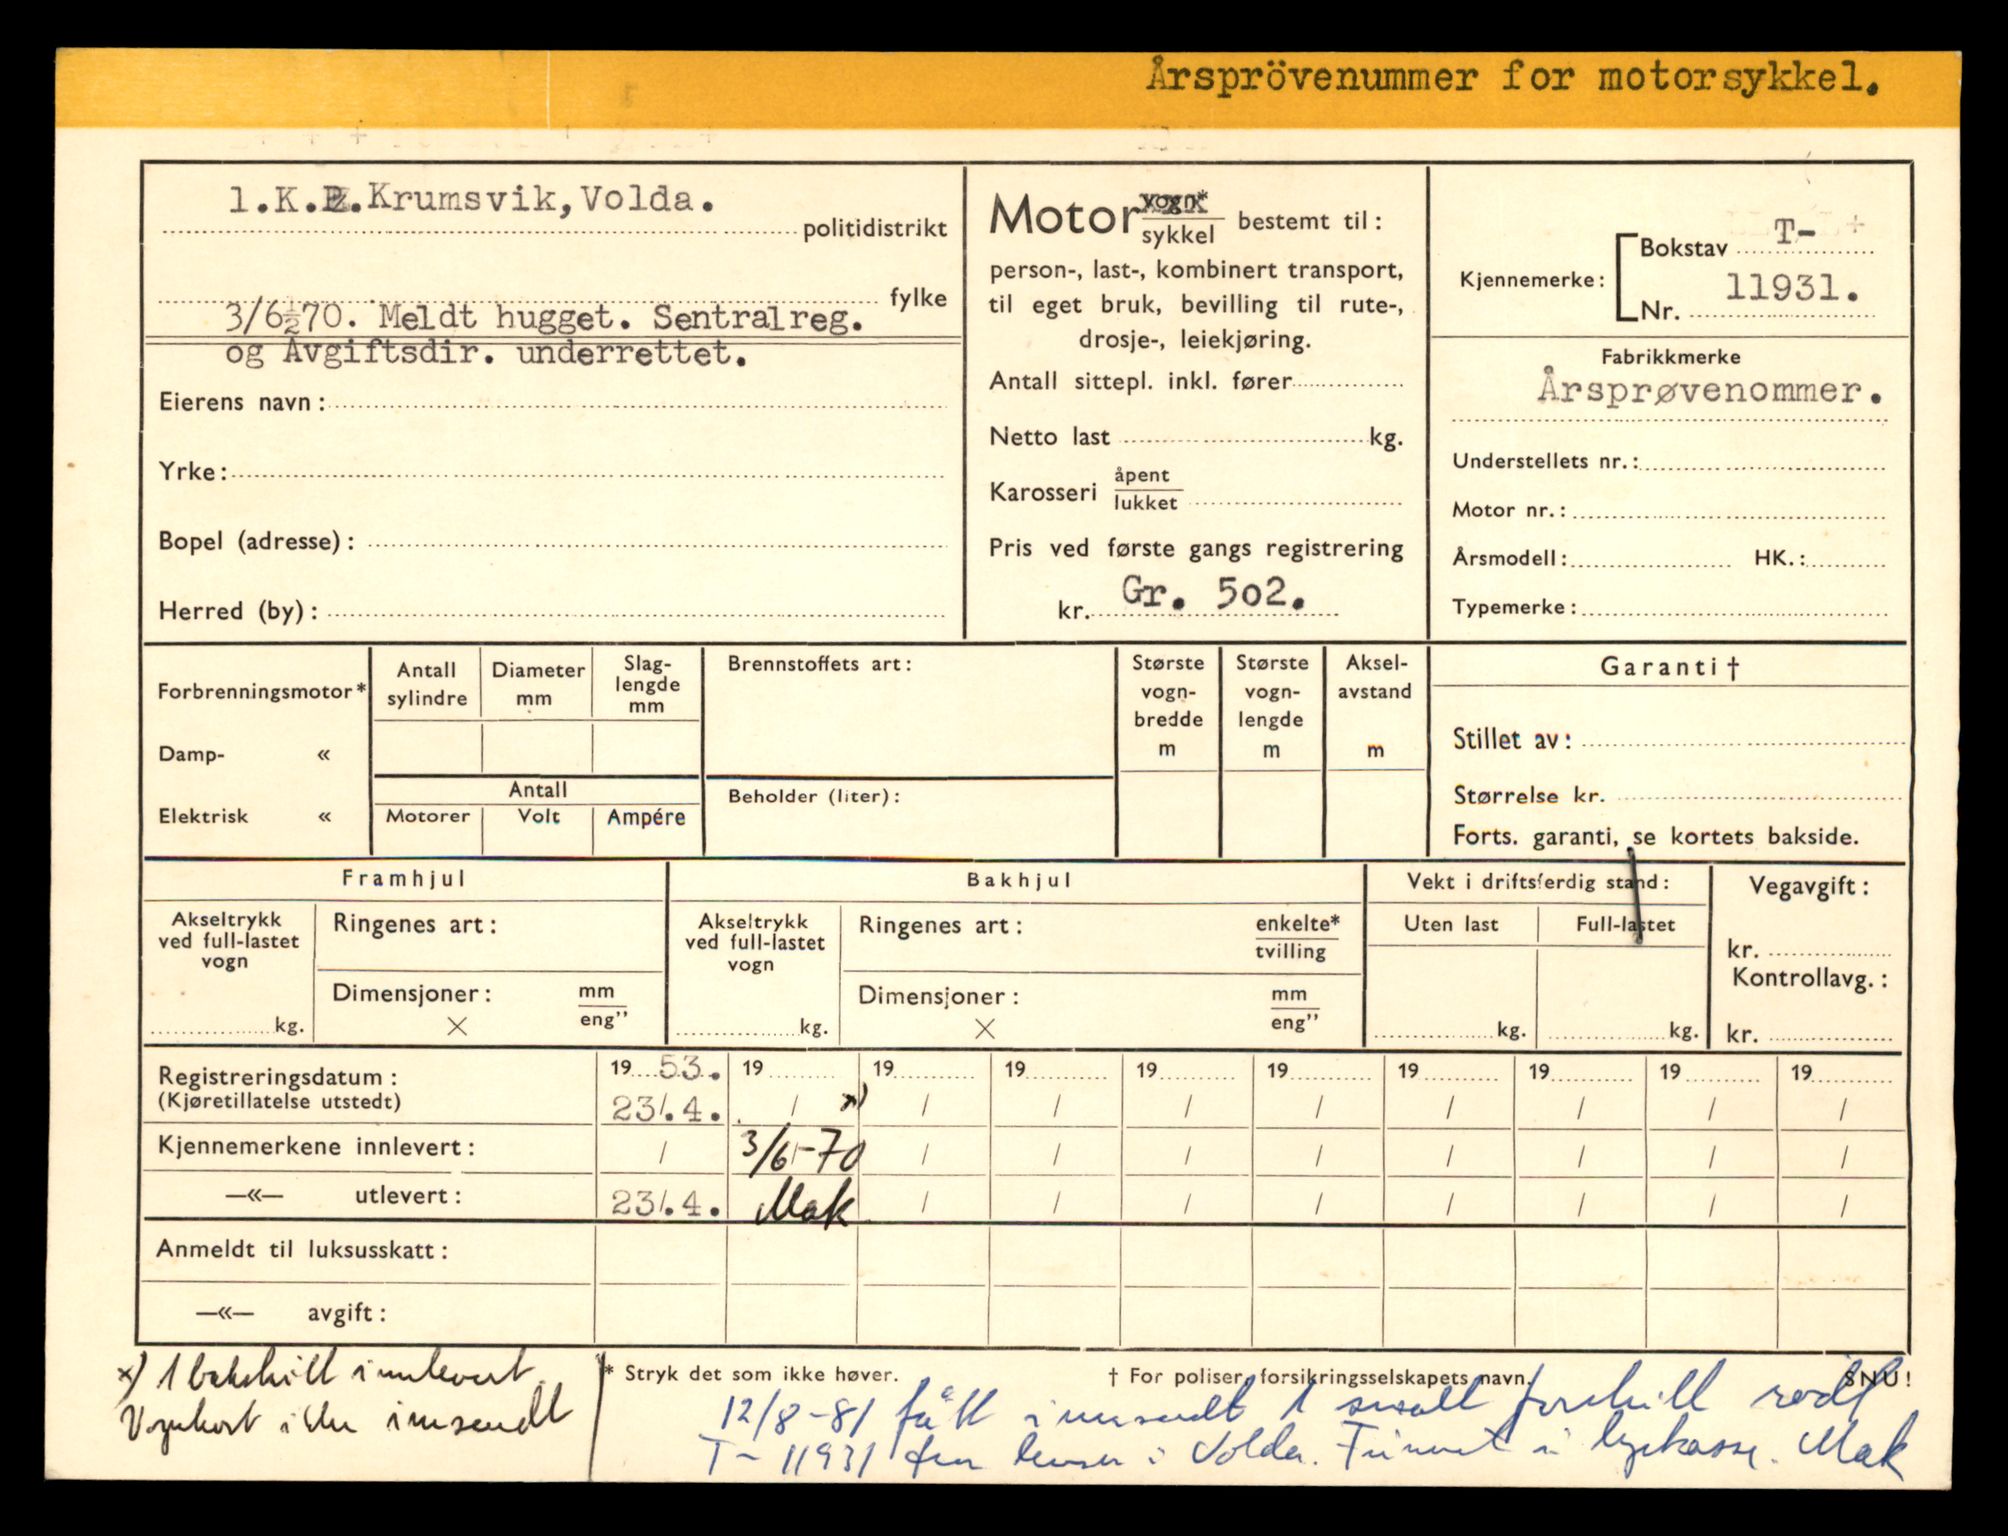 Årsprövenummer for motorsykkel.
1.K. Krumsvik, Volda.
politidistrikt
fylke
3/6-70. Meldt hugget. Sentralreg.
og Avgiftsdir. underrettet.
Eierens navn:
Yrke:
Bopel (adresse):
Herred (by):
Motor vogn*
sykkel bestemt til:
person-, last-, kombinert transport,
til eget bruk, bevilling til rute-,
drosje-, leiekjøring.
Antall sittepl. inkl. fører
Netto last kg.
Karosseri åpent
lukket
Pris ved første gangs registrering
kr. Gr. 502.
Kjennemerke: Bokstav T-
Nr. 11931.
Fabrikkmerke
Årsprøvenommer.
Understellets nr.:
Motor nr.:
Årsmodell: HK.:
Typemerke:
Forbrenningsmotor*
Damp- «
Elektrisk «
Antall
sylindre
Diameter
mm
Slag-
lengde
mm
Antall
Motorer Volt Ampére
Brennstoffets art:
Beholder (liter):
Største
vogn-
bredde
m
Største
vogn-
lengde
m
Aksel-
avstand
m
Garanti †
Stillet av:
Størrelse kr.
Forts. garanti, se kortets bakside.
Framhjul
Akseltrykk
ved full-lastet
vogn
kg.
Ringenes art:
Dimensjoner: mm
× eng”
Bakhjul
Akseltrykk
ved full-lastet
vogn
kg.
Ringenes art: enkelte*
tvilling
Dimensjoner: mm
× eng”
Vekt i driftsferdig stand:
Uten last Full-lastet
kg. kg.
Vegavgift:
kr.
Kontrollavg.:
kr.
Registreringsdatum: 19 53. 19 19 19 19 19 19 19 19 19
(Kjøretillatelse utstedt) 23/.4. / x) / / / / / / / /
Kjennemerkene innlevert: / 3/6-70 / / / / / / / /
—«— utlevert: 23/.4. Mak / / / / / / / /
Anmeldt til luksusskatt:
—«— avgift:
* Stryk det som ikke høver. † For poliser, forsikringsselskapets navn. SNU!
x) 1 bakskilt innlevert.
Vognkort ikke innsendt
12/8-81 fått innsendt 1 smalt forskilt rødt
T-11931 fra lensm i Volda. Finnes i Mak